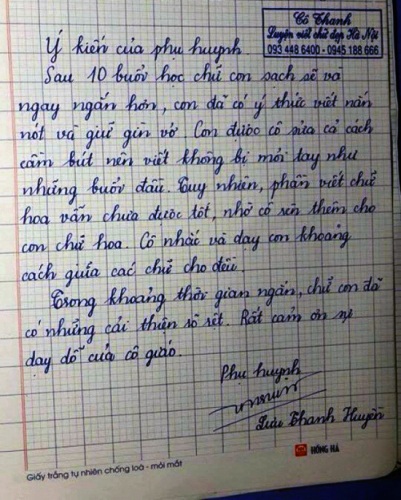 Cô Thanh
Luyện viết chữ đẹp Hà Nội
093 448 6400 - 0945 188 666
Ý kiến của phụ huynh.
Sau 10 buổi học chữ con sạch sẽ và
ngay ngắn hơn, con đã có ý thức viết nắn
nót và giữ gìn vở. Con được cô sửa cả cách
cầm bút nên viết không bị mỏi tay như
những buổi đầu. Tuy nhiên, phần viết chữ
hoa vẫn chưa được tốt, nhờ cô rèn thêm cho
con chữ hoa. Cô nhắc và dạy con khoảng
cách giữa các chữ cho đều.
Trong khoảng thời gian ngắn, chữ con đã
có những cải thiện rõ rệt. Rất cảm ơn sự
dạy dỗ của cô giáo.
Phụ huynh
Lưu Thanh Huyền
HỒNG HÀ
Giấy trắng tự nhiên chống loá - mỏi mắt